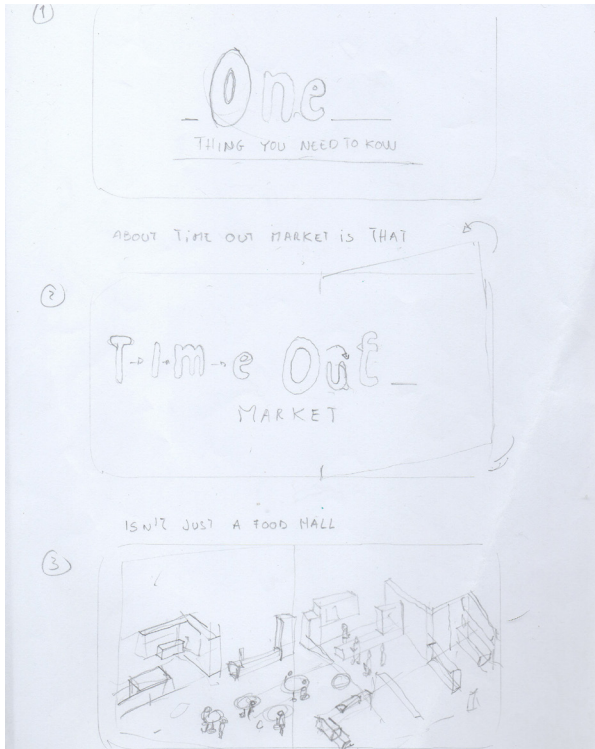 1
One
THING YOU NEED TO KOW
ABOUT TIME OUT MARKET IS THAT
2
TIMe OuT
MARKET
ISN'T JUST A FOOD HALL
3